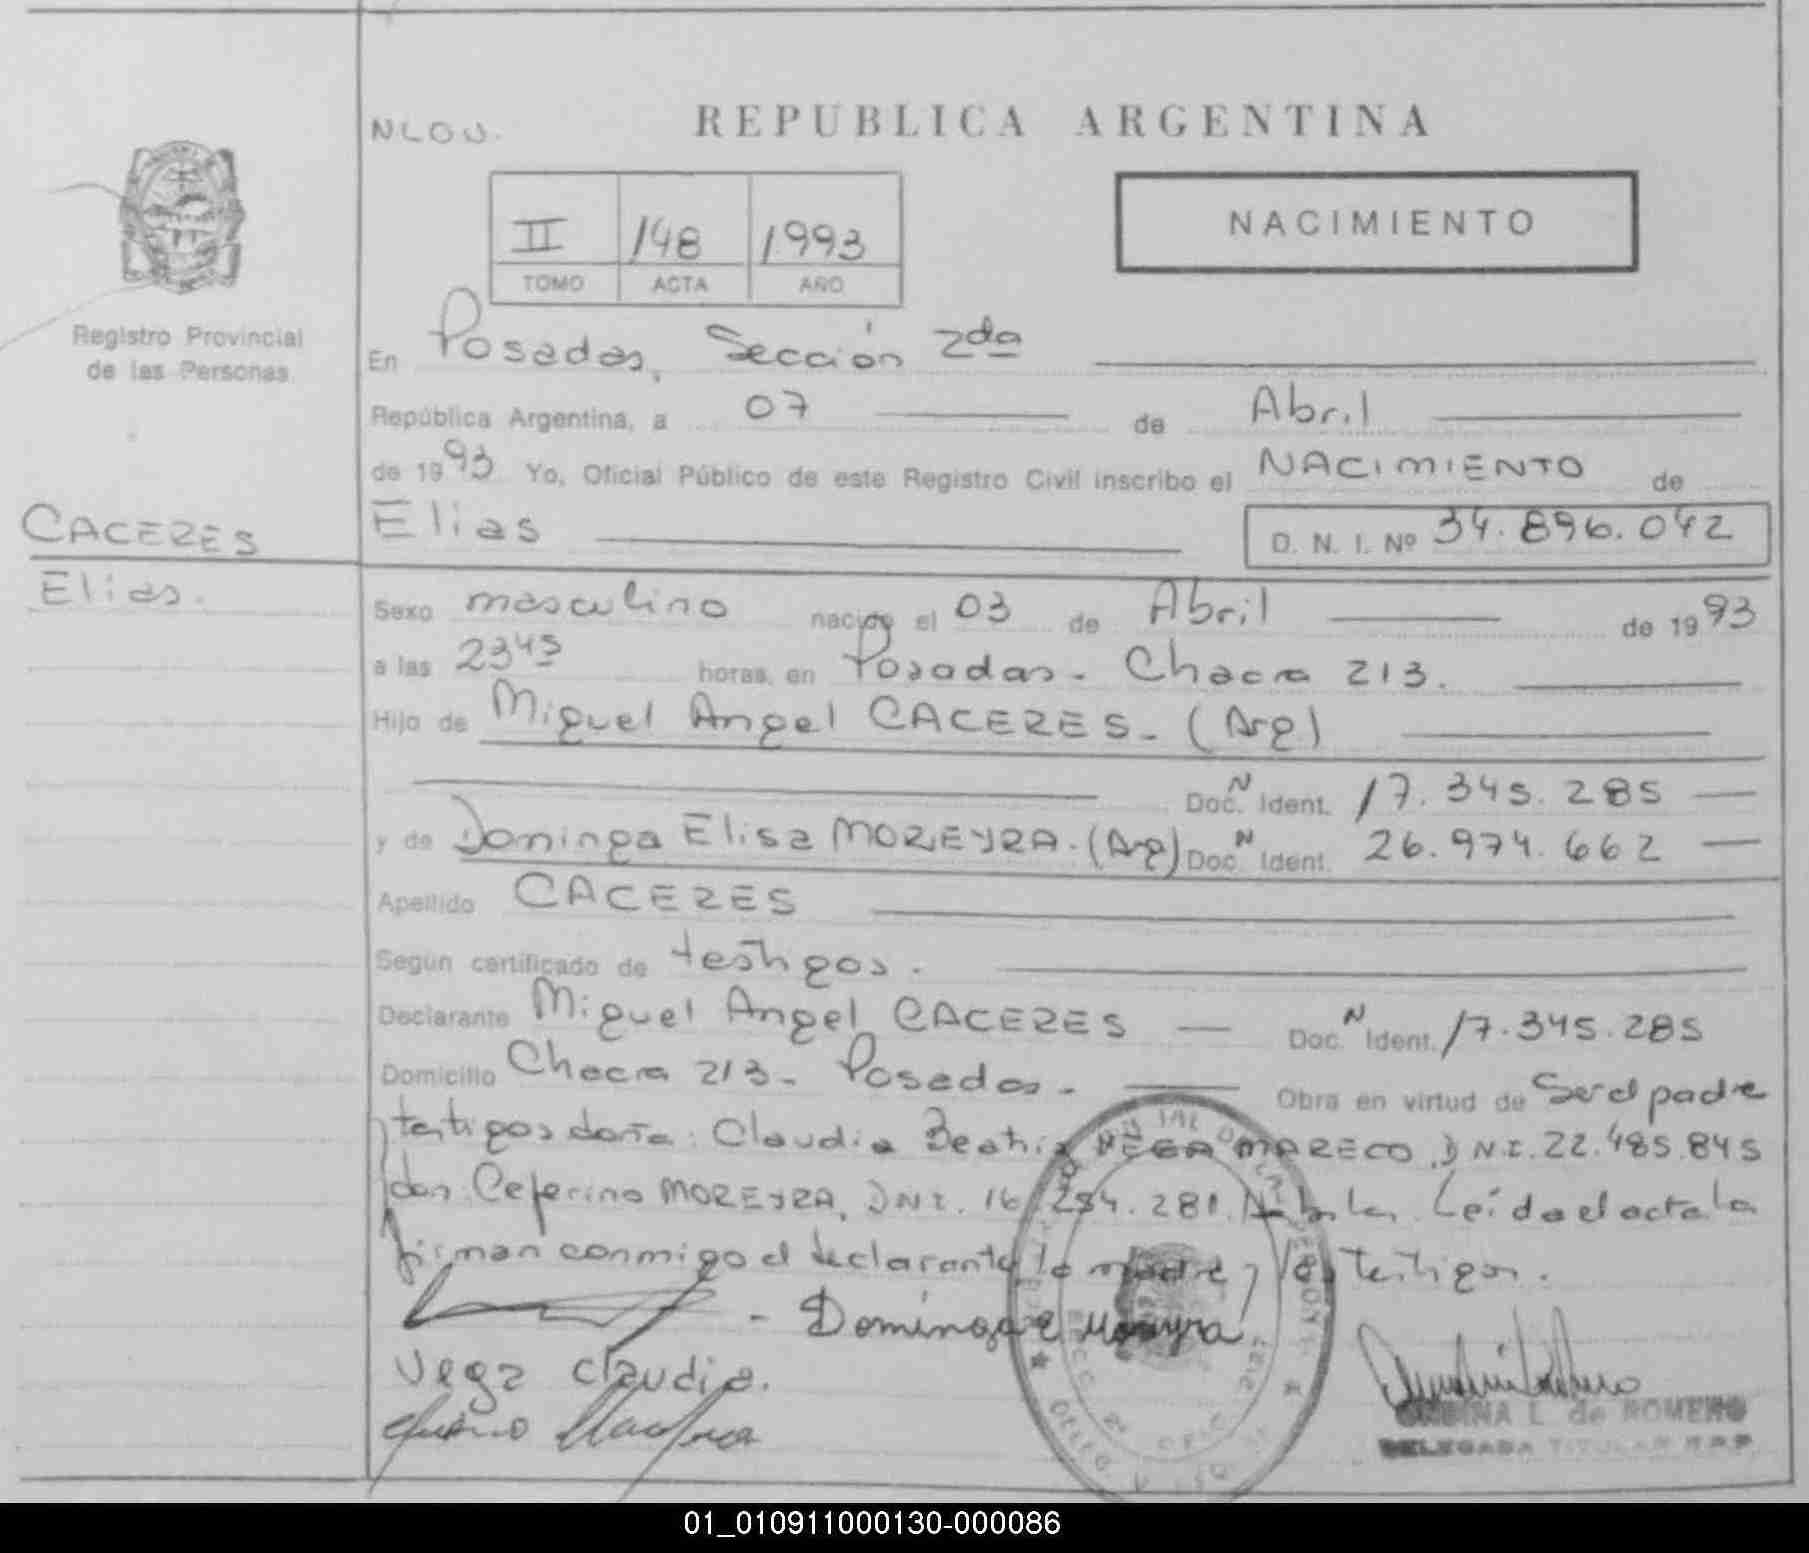 NLOU.
REPUBLICA ARGENTINA
II 148 1993
TOMO ACTA AÑO
NACIMIENTO
Registro Provincial
de las Personas
En Posadas, Sección 2da
República Argentina, a 07 de Abril
de 1993 Yo, Oficial Público de este Registro Civil inscribo el NACIMIENTO de
CACERES
Elias
Elias.
D. N. I. Nº 34.896.042
Sexo masculino nacido el 03 de Abril de 1993
a las 2345 horas, en Posadas - Chacra 213.
Hijo de Miguel Angel CACERES - (Arg)
Doc. N Ident. 17.345.285
y de Dominga Elisa MOREYRA. (Arg) Doc. N Ident. 26.974.662
Apellido CACERES
Según certificado de testigos.
Declarante Miguel Angel CACERES — Doc. N Ident. 17.345.285
Domicilio Chacra 213 - Posadas - Obra en virtud de Ser el padre
testigos doña: Claudia Beatriz VEGA MARECO, DNI. 22.485.845
don: Ceferino MOREYRA, DNI. 16.254.281. Leída el acta la
firman conmigo el declarante la madre y los testigos.
- Dominga E Moreyra
Vega Claudia.
L. de ROMERO
DELEGADA TITULAR R.P.P.
01_010911000130-000086